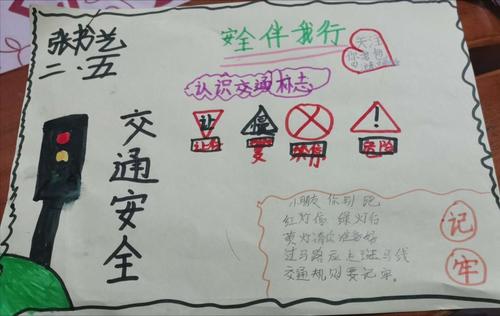 张书艺
二.五
安全伴我行
认识交通标志
让
慢
危险
交通安全
小朋友 你别跑
红灯停 绿灯行
黄灯请你准备好
过马路应走斑马线
交通规则要记牢。
记
牢